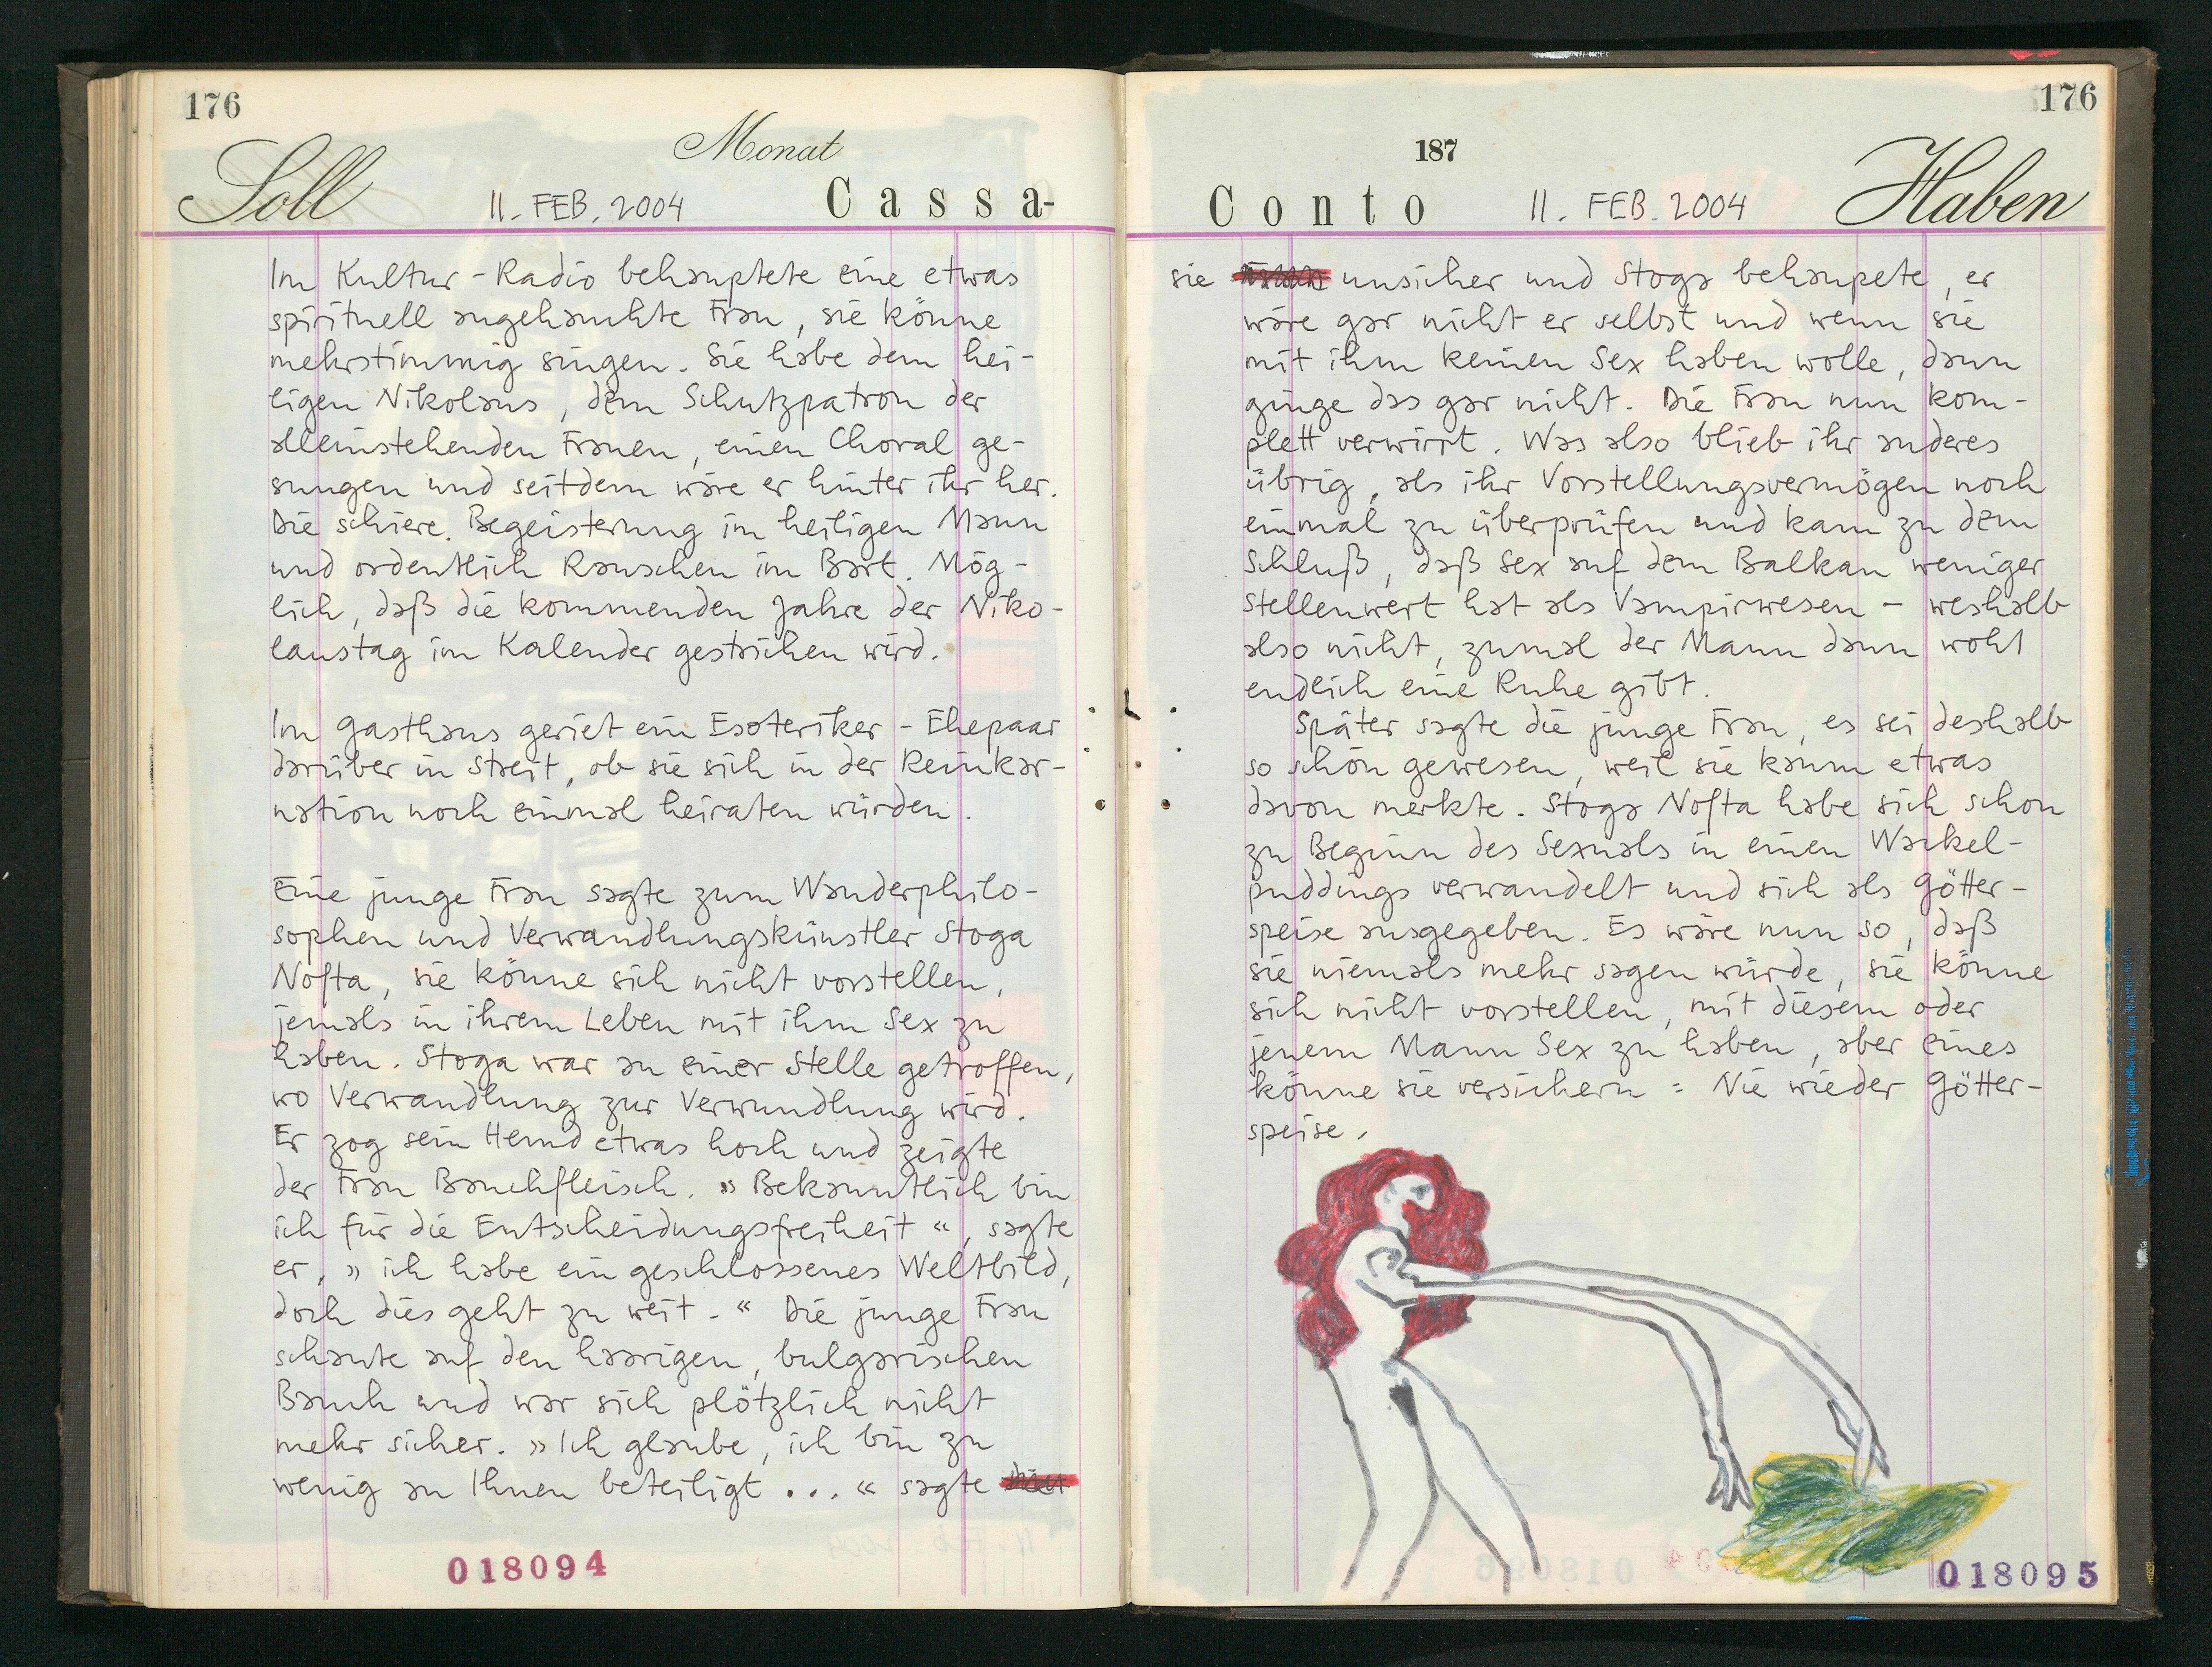 176
Soll
Monat
11. FEB. 2004
Cassa-
Im Kultur-Radio behauptete eine etwas
spirituell angehauchte Frau, sie könne
mehrstimmig singen. Sie habe dem hei-
ligen Nikolaus, dem Schutzpatron der
alleinstehenden Frauen, einen Choral ge-
sungen und seitdem wäre er hinter ihr her.
Die schiere Begeisterung im heiligen Mann
und ordentlich Rauschen im Bart. Mög-
lich, daß die kommenden Jahre der Niko-
laustag im Kalender gestrichen wird.
Im Gasthaus geriet ein Esoteriker-Ehepaar
darüber in Streit, ob sie sich in der Reinkar-
nation noch einmal heiraten würden.
Eine junge Frau sagte zum Wanderphilo-
sophen und Verwandlungskünstler Stoga
Nofta, sie könne sich nicht vorstellen,
jemals in ihrem Leben mit ihm Sex zu
haben. Stoga war an einer Stelle getroffen,
wo Verwandlung zur Verwundlung wird.
Er zog sein Hemd etwas hoch und zeigte
der Frau Bauchfleisch. »Bekanntlich bin
ich für die Entscheidungsfreiheit«, sagte
er, »ich habe ein geschlossenes Weltbild,
doch dies geht zu weit.« Die junge Frau
schaute auf den haarigen, bulgarischen
Bauch und war sich plötzlich nicht
mehr sicher. »Ich glaube, ich bin zu
wenig an Ihnen beteiligt ...« sagte
018094
176
187
Conto
11. FEB. 2004
Haben
sie unsicher und Stoga behaupete, er
wäre gar nicht er selbst und wenn sie
mit ihm keinen Sex haben wolle, dann
ginge das gar nicht. Die Frau nun kom-
plett verwirrt. Was also blieb ihr anderes
übrig, als ihr Vorstellungsvermögen noch
einmal zu überprüfen und kam zu dem
Schluß, daß Sex auf dem Balkan weniger
Stellenwert hat als Vampirwesen – weshalb
also nicht, zumal der Mann dann wohl
endlich eine Ruhe gibt.
Später sagte die junge Frau, es sei deshalb
so schön gewesen, weil sie kaum etwas
davon merkte. Stoga Nofta habe sich schon
zu Beginn des Sexuals in einen Wackel-
puddings verwandelt und sich als Götter-
speise ausgegeben. Es wäre nun so, daß
sie niemals mehr sagen würde, sie könne
sich nicht vorstellen, mit diesem oder
jenem Mann Sex zu haben, aber eines
könne sie versichern: Nie wieder Götter-
speise.
018095